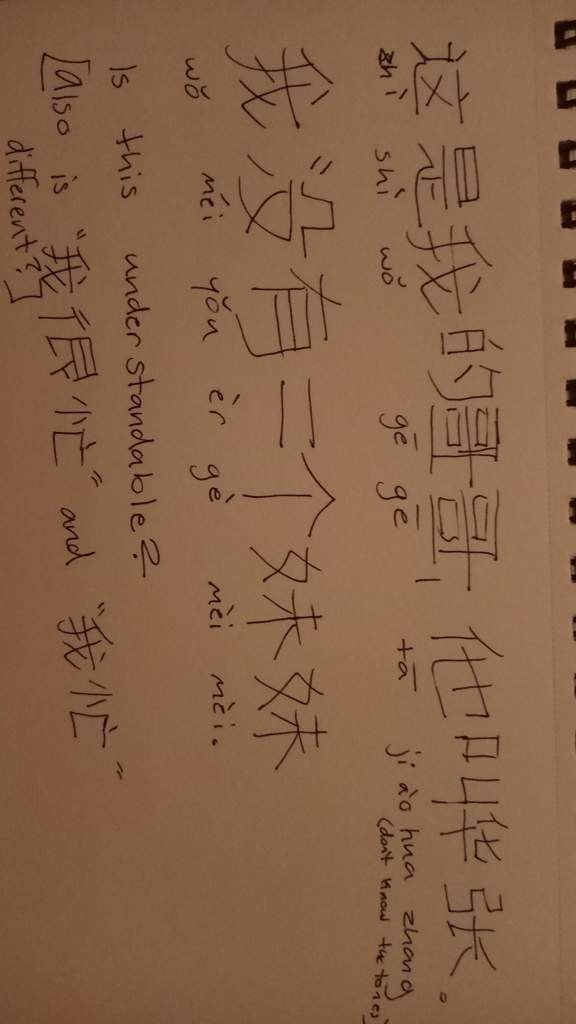 这是我的哥哥, 他叫华张。
zhì shì wǒ gē gē tā jiào hua zhang
(don't know the tones)
我没有二个妹妹
wǒ méi yǒu èr gè mèi mèi.
Is this understandable?
[also is "我很忙" and "我忙"
different?]